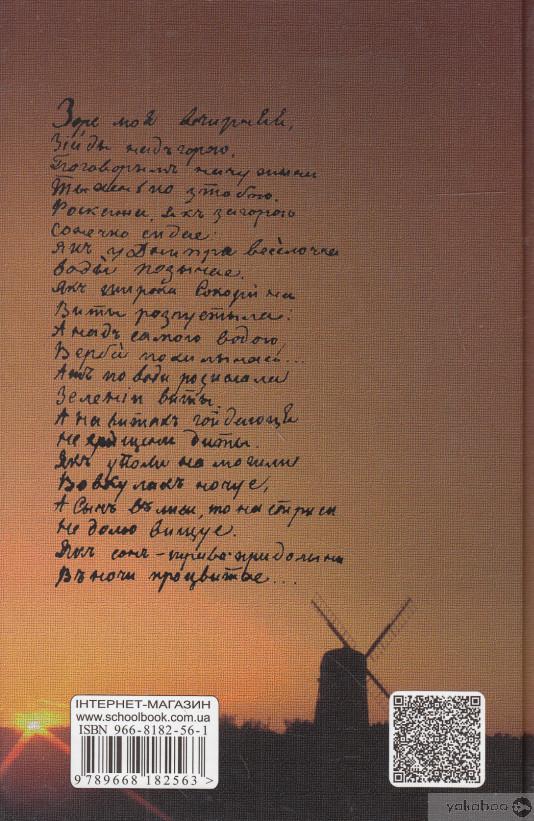 Зоре моя вечирняя,
Зійды надъ горою,
Поговорымъ
Тыхенько зтобою.
Роскажи, якъ за горою
Сонечко сидае:
Якъ у Днипра весёлочка
Воду позычае.
Якъ широка Сокорина
Виты розпустыла:
А надъ самого водою,
Верба похилылась...
Ажъ по води розислала
Зелении виты.
А на витахъ гойдаюцця
Не хрещени диты.
Якъ у поли на могили
Вовкулакъ ночуе,
А Сычъ въ лиси, то на стриси
Не долю вищуе.
Якъ сонъ-трава при долыни
Въ ночи процвитае...
ІНТЕРНЕТ-МАГАЗИН
www.schoolbook.com.ua
ISBN 966-8182-56-1
9 789668 182563 >
yakaboo